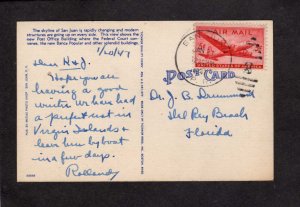 The skyline of San Juan is rapidly changing and modern
structures are going up on every side. This view shows the
new Post Office Building where the Federal Court con-
venes, the new Banco Popular and other splendid buildings.
1/20/47
Dear H & J.
Hope you are
having a good
winter. We have had
a perfect rest in
Virgin Islands &
leave here by boat
in a few days.
Rollandy
AIR MAIL
UNITED STATES OF AMERICA
POST CARD
Dr. J. B. Drummond
Delray Beach
Florida